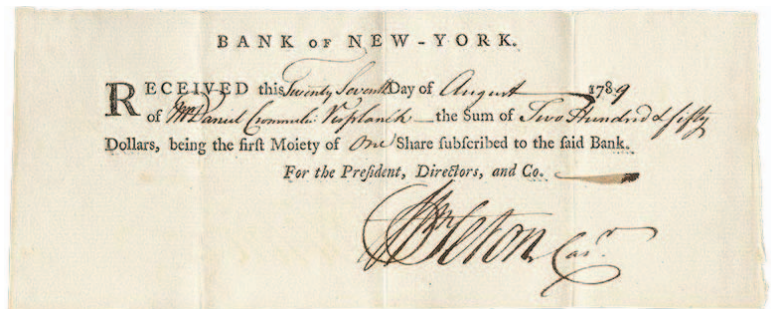 BANK OF NEW-YORK.
RECEIVED this Twenty Seventh Day of August 1789
of Mr. Daniel Crommelin Verplanck the Sum of Two Hundred & fifty
Dollars, being the firſt Moiety of One Share ſubſcribed to the ſaid Bank.
For the Preſident, Directors, and Co.
Wm Seton Casr.